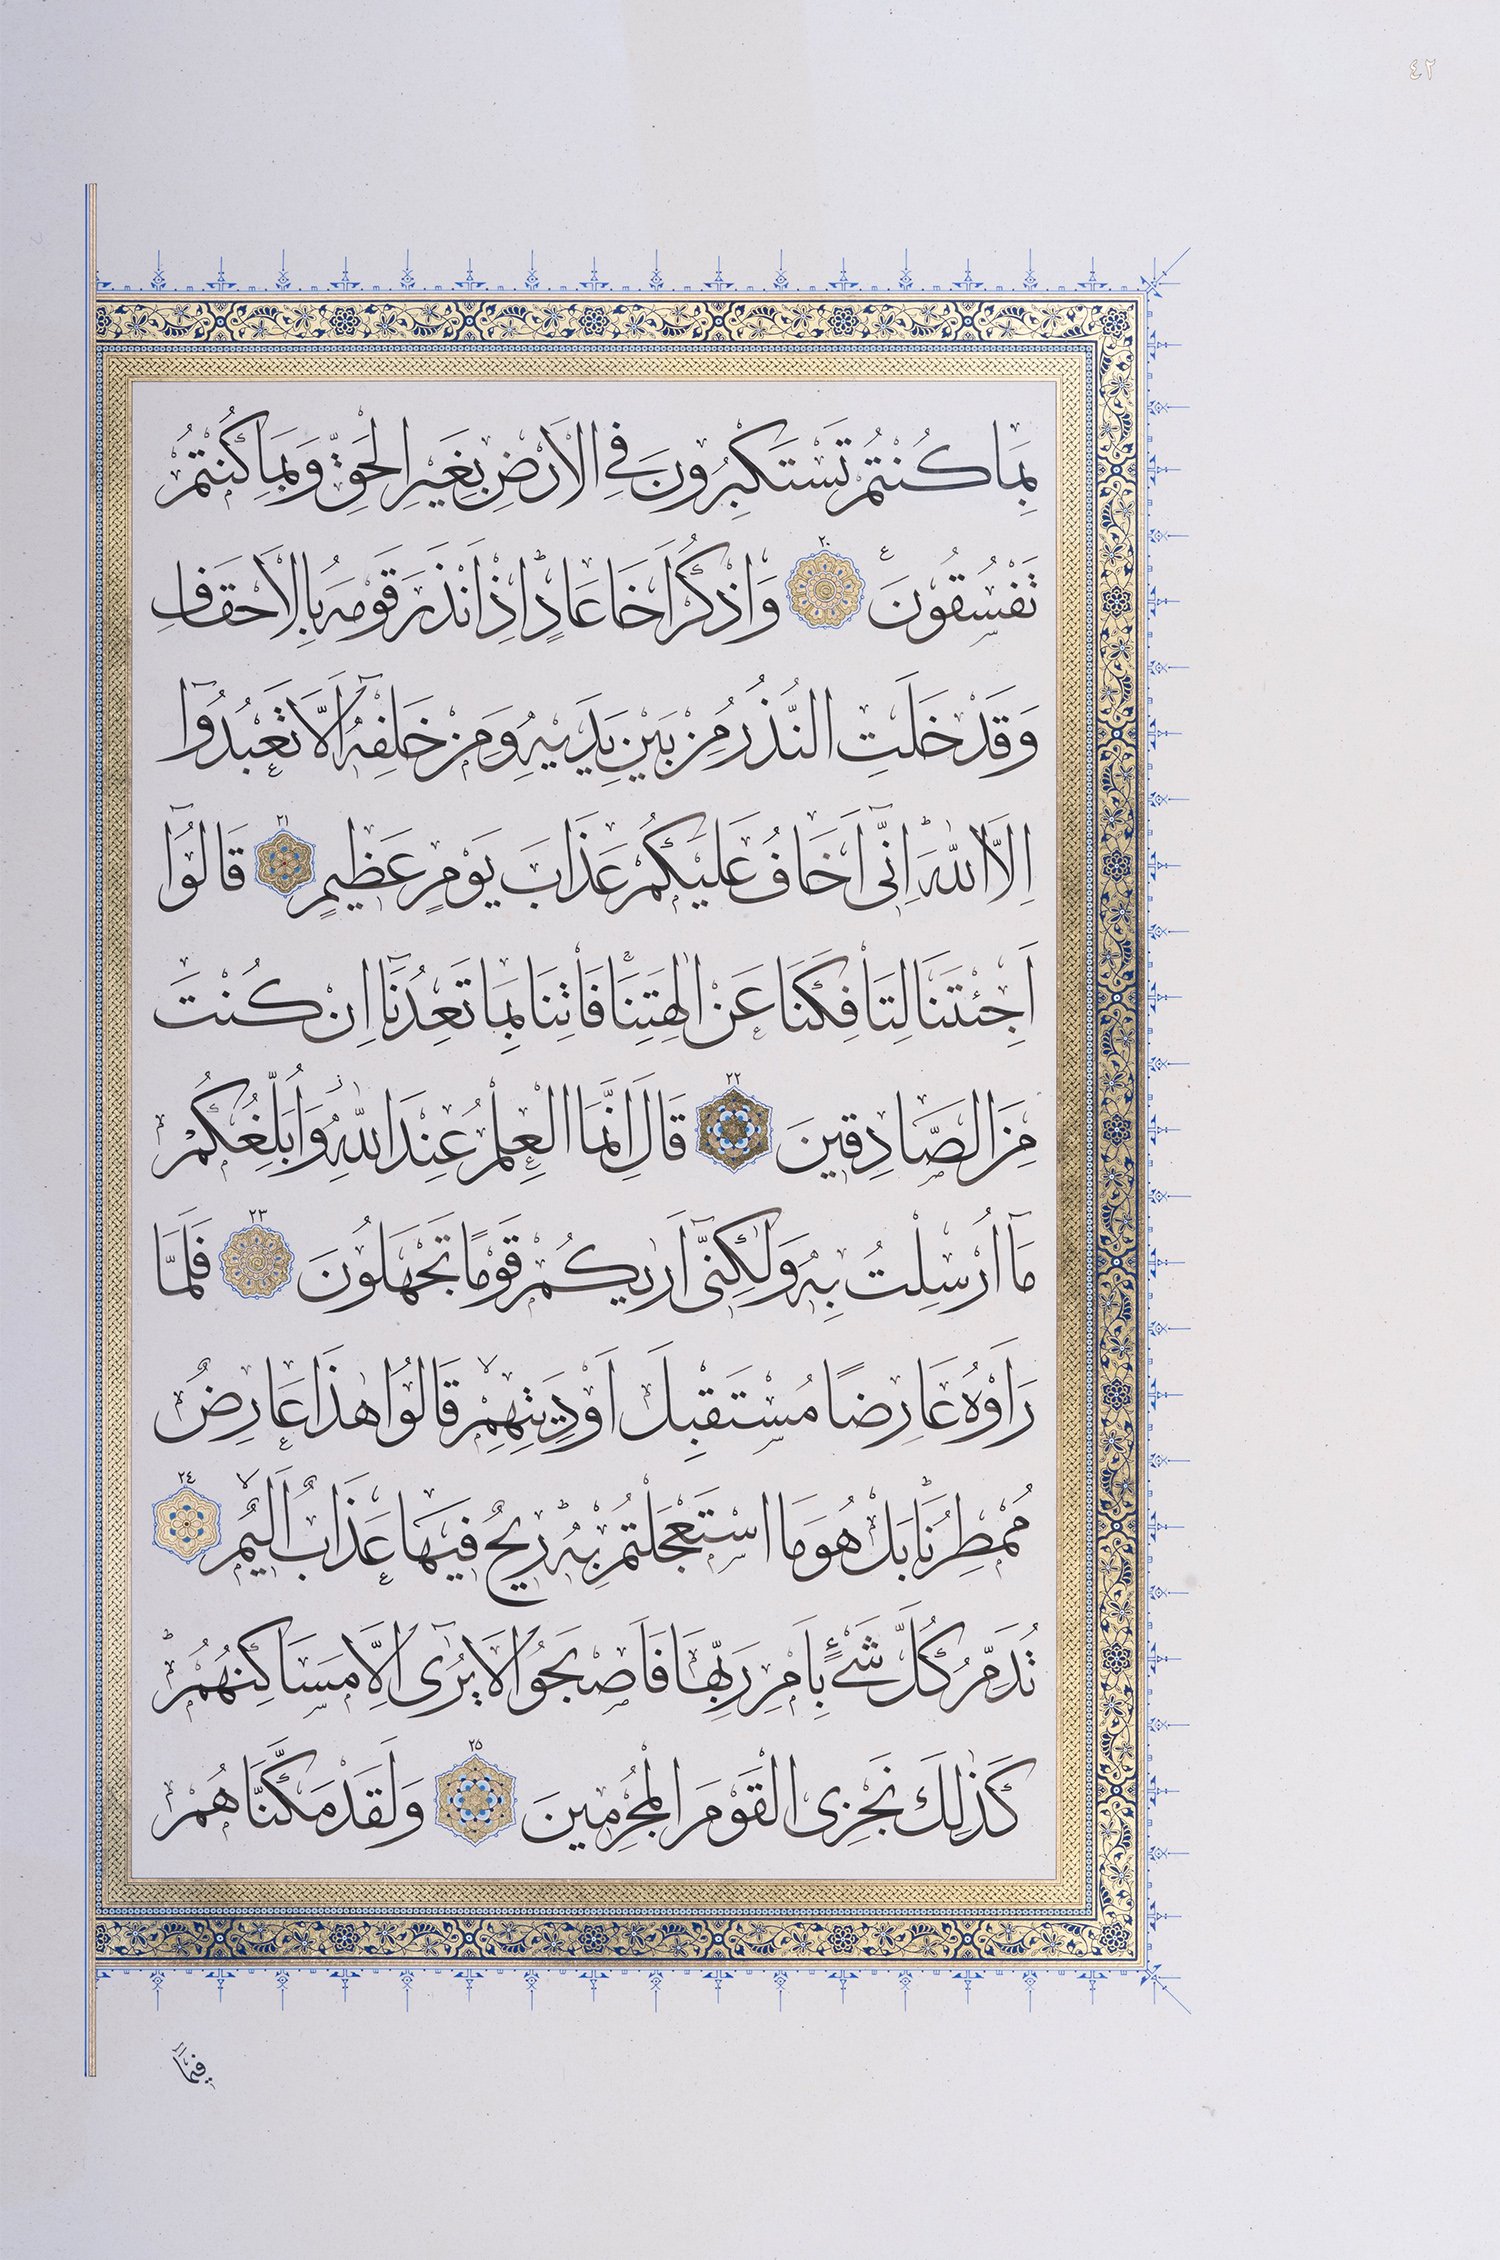 ٤٢
بِمَا كُنْتُمْ تَسْتَكْبِرُونَ فِي الْاَرْضِ بِغَيْرِ الْحَقِّ وَبِمَا كُنْتُمْ
تَفْسُقُونَ ٢٠ وَاذْكُرْ اَخَا عَادٍ اِذْ اَنْذَرَ قَوْمَهُ بِالْاَحْقَافِ
وَقَدْ خَلَتِ النُّذُرُ مِنْ بَيْنِ يَدَيْهِ وَمِنْ خَلْفِهٖٓ اَلَّا تَعْبُدُٓوا
اِلَّا اللّٰهَ اِنّٖٓى اَخَافُ عَلَيْكُمْ عَذَابَ يَوْمٍ عَظٖيمٍ ٢١ قَالُٓوا
اَجِئْتَنَا لِتَأْفِكَنَا عَنْ اٰلِهَتِنَا فَأْتِنَا بِمَا تَعِدُنَٓا اِنْ كُنْتَ
مِنَ الصَّادِقٖينَ ٢٢ قَالَ اِنَّمَا الْعِلْمُ عِنْدَ اللّٰهِ وَاُبَلِّغُكُمْ
مَٓا اُرْسِلْتُ بِهٖ وَلٰكِنّٖٓى اَرٰيكُمْ قَوْمًا تَجْهَلُونَ ٢٣ فَلَمَّا
رَاَوْهُ عَارِضًا مُسْتَقْبِلَ اَوْدِيَتِهِمْ قَالُوا هٰذَا عَارِضٌ
مُمْطِرُنَا بَلْ هُوَ مَا اسْتَعْجَلْتُمْ بِهٖ رٖيحٌ فٖيهَا عَذَابٌ اَلٖيمٌ ٢٤
تُدَمِّرُ كُلَّ شَیْءٍ بِاَمْرِ رَبِّهَا فَاَصْبَحُوا لَا يُرٰٓى اِلَّا مَسَاكِنُهُمْ
كَذٰلِكَ نَجْزِى الْقَوْمَ الْمُجْرِمٖينَ ٢٥ وَلَقَدْ مَكَّنَّاهُمْ
فٖيمَٓا